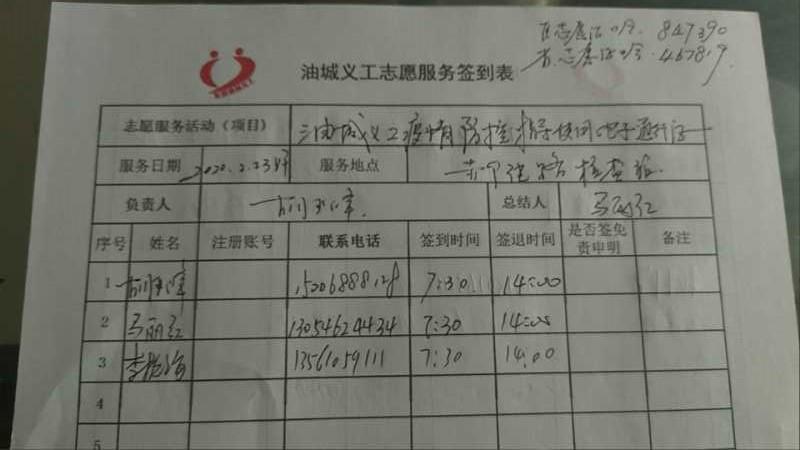 市志愿证口令. 847390
省志愿证口令. 467819
油城义工志愿服务签到表
志愿服务活动（项目） 油城义工疫情防控指导使用电子通行证
服务日期 2020.2.23 服务地点 检查站
负责人 胡玉峰. 总结人 马丽红
序号 姓名 注册账号 联系电话 签到时间 签退时间 是否签免责申明 备注
1 胡玉峰 15206888128 7:30 14:00
2 马丽红 13054624434 7:30 14:00
3 13561059111 7:30 14:00
4
5